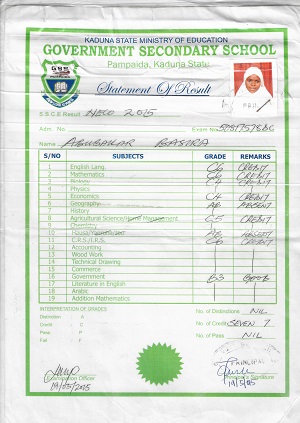 KADUNA STATE MINISTRY OF EDUCATION
GOVERNMENT SECONDARY SCHOOL
Pampaida, Kaduna State.
Statement Of Result
GSS
S S C E Result NECO 2015
Adm. No Exam No.
Name ABUBAKAR BASIRA
S/NO SUBJECTS GRADE REMARKS
1 English Lang. C6 CREDIT
2 Mathematics C6 CREDIT
3 Biology C4 CREDIT
4 Physics
5 Economics C4 CREDIT
6 Geography AB ABSENT
7 History
8 Agricultural Science/Home Management C5 CREDIT
9 Chemistry
10 Hausa/Yoruba/Igbo
11 C.R.S./I.R.S. C6 CREDIT
12 Accounting
13 Wood Work
14 Technical Drawing
15 Commerce
16 Government B3 GOOD
17 Literature in English
18 Arabic
19 Addition Mathematics
INTERPRETATION OF GRADES
Distinction A
Credit C
Pass P
Fail F
No. of Distinctions NIL
No. of Credit SEVEN 7
No. of Pass NIL
Examination Officer
Principal's Signature